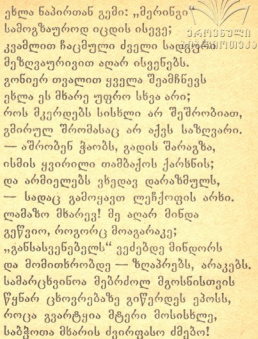 ეხლა ნაპირთან გემი: „მერინგი“
სამოგზაუროდ იცდის ისევე;
კვამლით ჩაცმული ძველი სადგური
მეზღვაურივით აღარ ისვენებს.
გონიერ თვალით ყველა შეამჩნევს
ეხლა ეს მხარე უფრო სხვა არი;
როს მკერდებს სისხლი არ შეშრობიათ,
გმირულ შრომასაც არ აქვს საზღვარი.
— აშრობენ ჭაობს, გადის შარაგზა,
ისმის ყვირილი თამბაქოს ქარხნის;
და არმიელებს ვხედავ დარაზმულს,
— სადაც გამოყავთ ლეჩქოფის არხი.
ლამაზო მხარევ! მე აღარ მინდა
გეწვიო, როგორც მოაგარაკე;
„განსასვენებელს“ ვეძებდე მინდორს
და მომითხრობდე — ზღაპრებს, არაკებს.
სამარცხვინოა მებრძოლ მგოსნისთვის
წყნარ ცხოვრებაზე გიწერდეს ეპოსს,
როცა გვარტყია მტერი მოსისხლე,
საბჭოთა მხარის ძვირფასო ძმებო!
ეროვნული
ბიბლიოთეკა